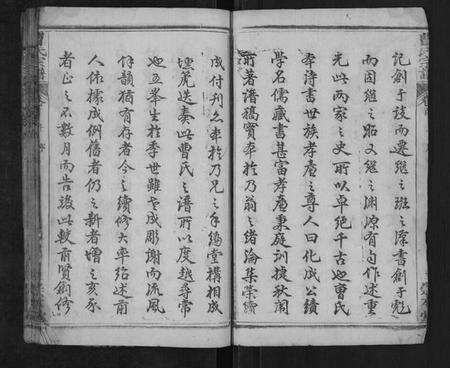 記創于談而遷繼之班之漢書創于彪
而固繼之昭又繼之淵源有自作述重
光此兩家之史所以卓絕千古也曹氏
本詩書世族孝庵之尊人曰化成公績
學名儒藏書甚富孝庵秉庭訓捷秋闈
所著譜稿實本於乃翁之緒論集榮續
成付刊之年於乃兄之手塢堂構相成
壎箎迭奏此曹氏之譜所以度越尋常
也五峯生於季世雖老成彫謝而流風
餘韻猶有存者今之續修大率紹述前
人依據成例舊者仍之新者增之亥豕
者正之不數月而告竣此較前賢創修